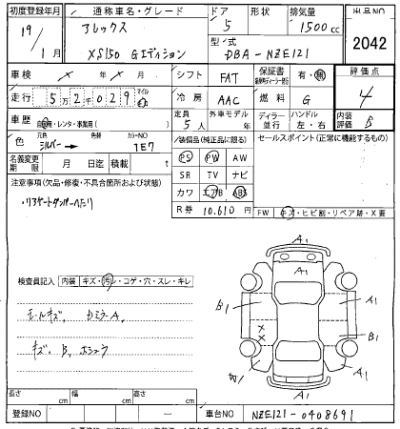 初度登録年月 通称車名・グレード ドア 形状 排気量 出品NO
19/1月 アレックス 5 1500cc
XS150 Gエディション 型式 DBA-NZE121 2042
車検 × 年 × 月 シフト FAT 保証書 有・無 評価点
走行 5万2千029 マイル km 冷房 AAC 燃料 G 4
車歴 自家用・レンタ・事業用( ) 定員 5人 外車モデル 年 ディーラー 並行 ハンドル 左・右 内装評価 B
色 元色 シルバー→ 色替 カラーNO 1E7 装備品(純正品に限る) セールスポイント(正常に機能するもの)
名義変更期限 月 日迄 積載 t PS PW AW
注意事項(欠品・修復・不具合箇所および状態) SR TV ナビ
カワ エアB ABS
R券 10,610円
FW キズ・ヒビ割・リペア跡・X要
A1
A1
B1
A1
B1
W1
A1
A1
検査員記入 内装 キズ・汚レ・コゲ・穴・スレ・キレ
モールキズ、
キズ、B、
長さ cm 幅 cm 高さ cm
登録NO — 車台NO NZE121-0408691